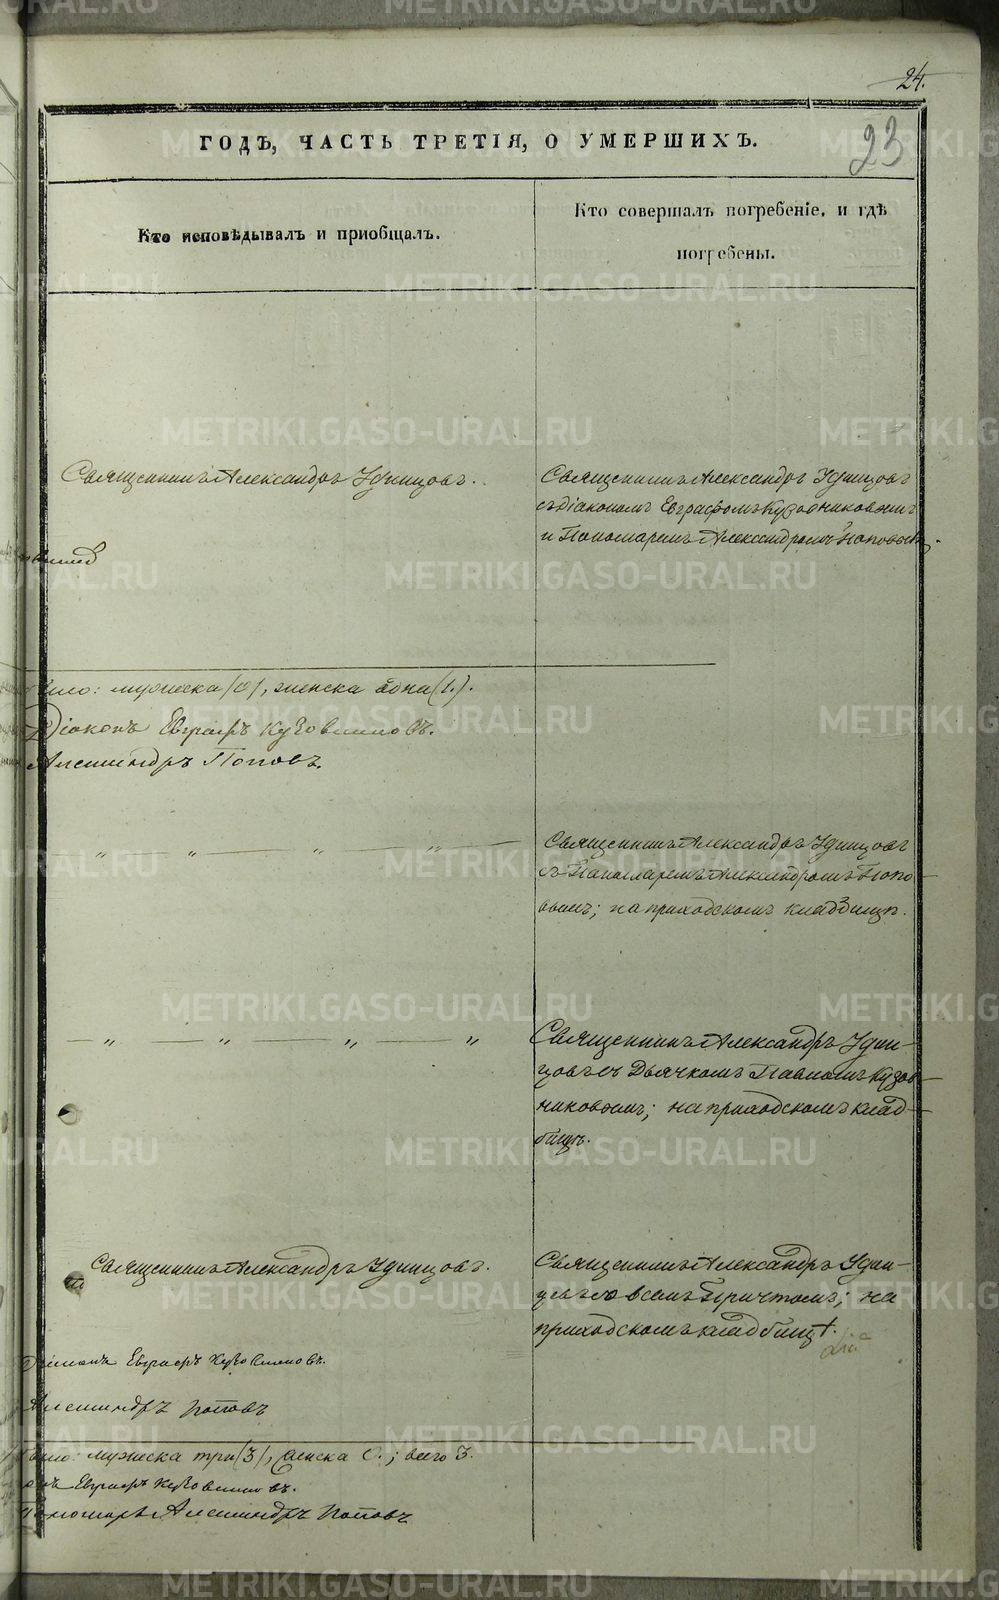 24.
23
ГОДЪ, ЧАСТЬ ТРЕТІЯ, О УМЕРШИХЪ.
Кто исповѣдывалъ и приобщалъ.
Кто совершалъ погребеніе, и гдѣ
погребены.
Священникъ Александръ Удинцовъ.
Священникъ Александръ Удинцовъ
съ діакономъ Евграфомъ Кузовниковымъ
и Пономаремъ Александромъ Поповымъ.
мужеска (0), женска одна (1.).
Діаконъ Евграфъ Кузовниковъ.
Александръ Поповъ.
Священникъ Александръ Удинцовъ
съ Пономаремъ Александромъ Попо-
вымъ; на приходскомъ кладбищѣ.
Священникъ Александръ Удин-
цовъ съ Дьячкомъ Павломъ Кузов-
никовымъ; на приходскомъ клад-
бищѣ.
Священникъ Александръ Удинцовъ.
Священникъ Александръ Удин-
цовъ со всемъ Причтомъ; на
приходскомъ кладбищѣ.
Діаконъ Евграфъ Кузовниковъ.
Александръ Поповъ
мужеска три (3), женска 0.; всего 3.
Евграфъ Кузовниковъ.
Пономарь Александръ Поповъ
METRIKI.GASO-URAL.RU